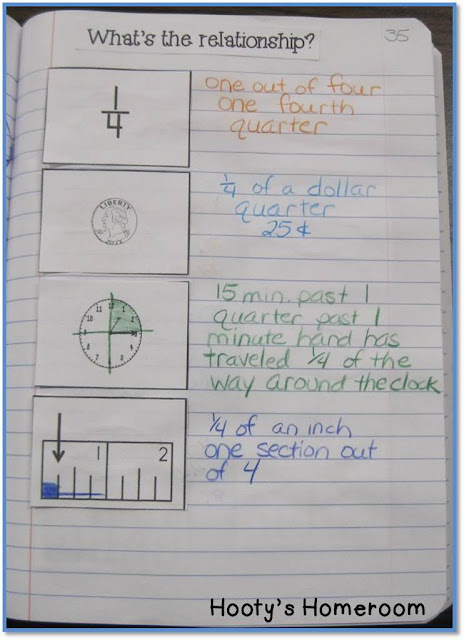 What's the relationship?
35
1
4
one out of four
one fourth
quarter
LIBERTY
1/4 of a dollar
quarter
25¢
15 min. past 1
quarter past 1
minute hand has
traveled 1/4 of the
way around the clock
1/4 of an inch
one section out
of 4
1 2
Hooty's Homeroom